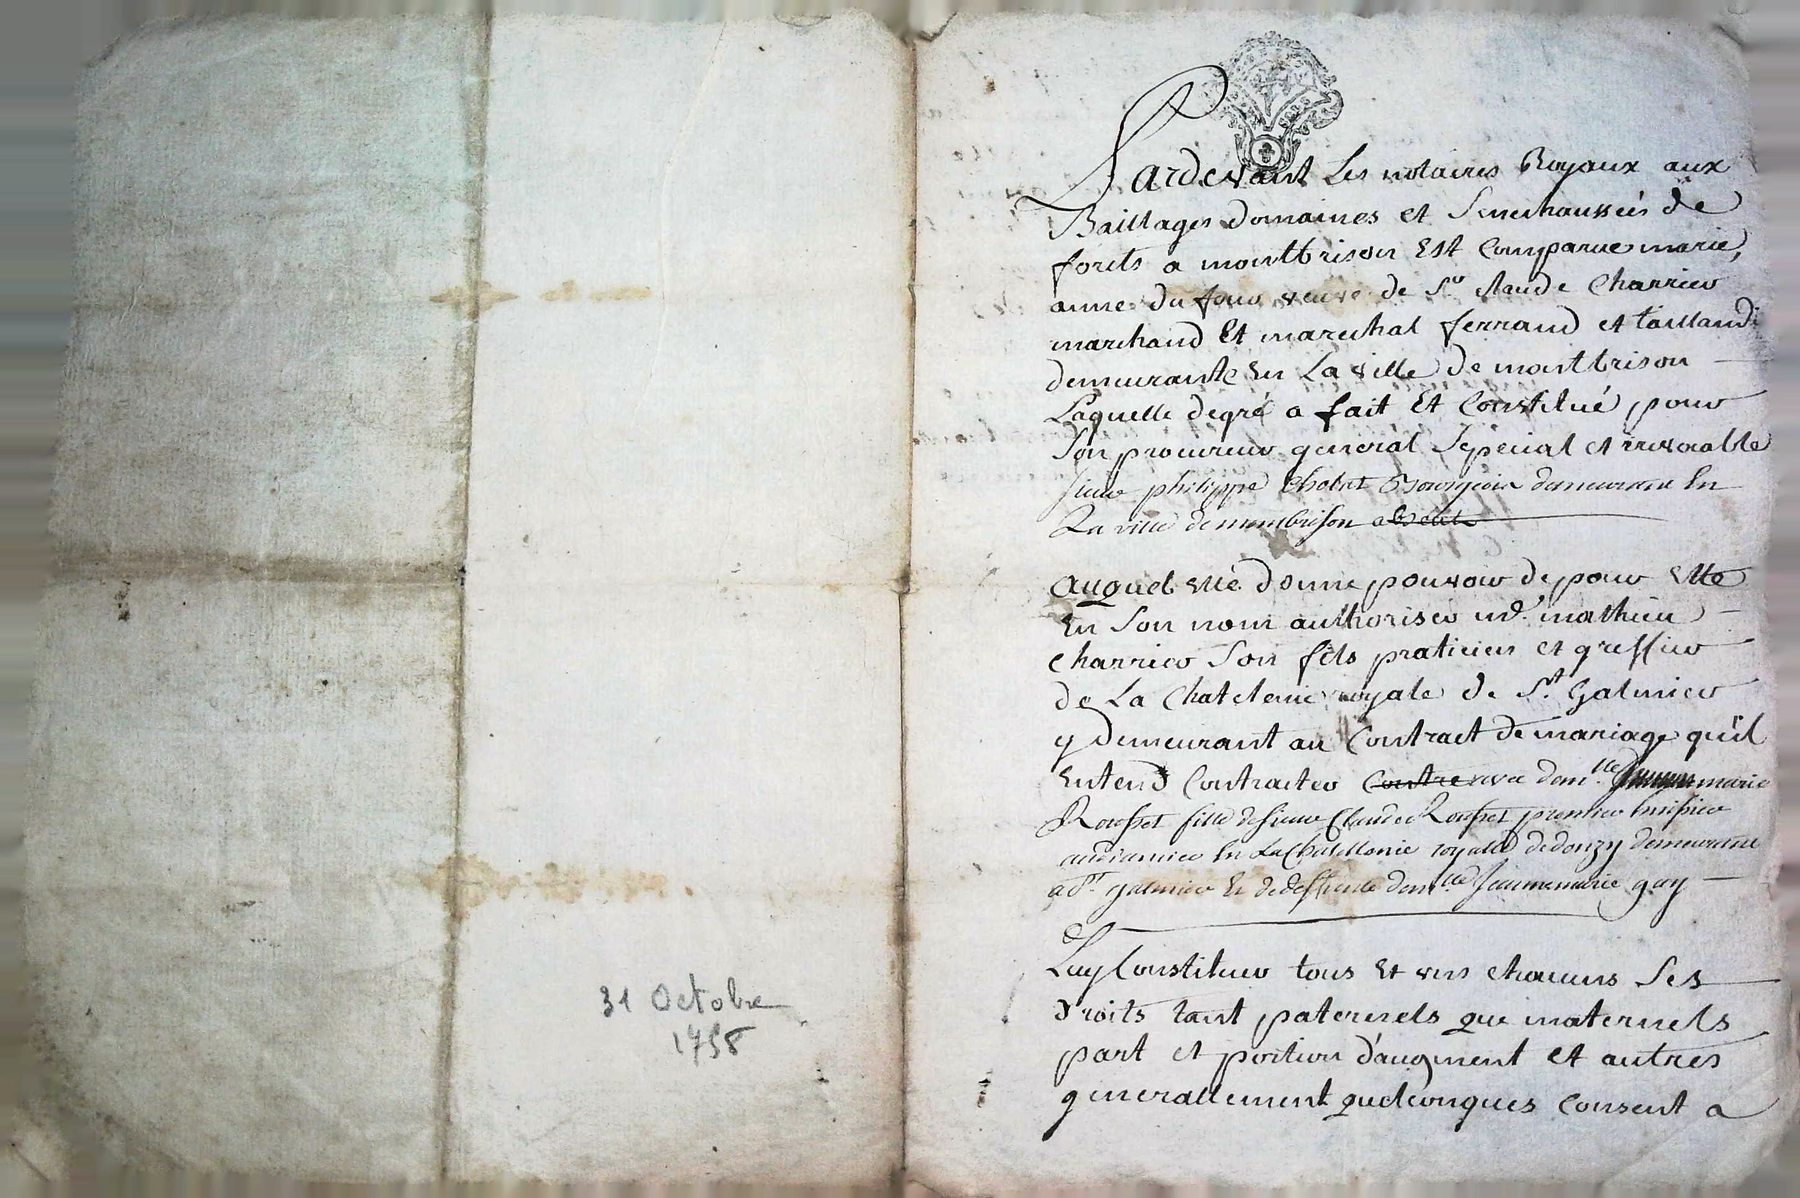 31 Octobre
1758
Pardevant Les notaires Royaux aux
Baillages Domaines et Senechaussées de
forets a montbrison Est Comparue marie
anne du four veuve de Sr Claude Charrier
marchand Et marechal ferrand et tailland
demeurante En La ville de montbrison
Laquelle degré a fait Et Constitué pour
Son procureur general Special et irrevocable
sieur philippe Bourgeois demeurant En
La ville de montbrison absent
auquel elle donne pouvoir de pour Elle
En Son nom authoriser mathieu
Charrier Son fils praticien et greffier
de La Chatelenie royale de St Galmier
y demeurant au Contract de mariage qu'il
Entend Contracter Contre avec demlle marie
Rousset fille de sieur Claude Rousset premier huissier
audiancier En La Chatellenie royalle de donzy demeurant
a St galmier Et de deffunte demlle Jeanne marie gay
Luy Constituer tous Et uns chacuns Ses
droits tant paternels que maternels
part et portion d'augment et autres
generallement quelconques Consent a